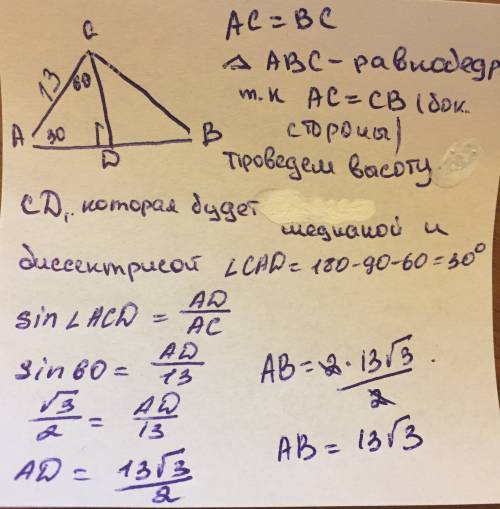 C
13
60
A
30
D
B
AC = BC
△ ABC - равнобедр
т.к AC = CB (бок.
стороны)
Проведем высоту
CD, которая будет
медианой и
биссектрисой ∠CAD = 180-90-60 = 30°
sin∠ACD = AD/AC
sin 60 = AD/13
√3/2 = AD/13
AD = 13√3/2
AB = 2·13√3/2.
AB = 13√3